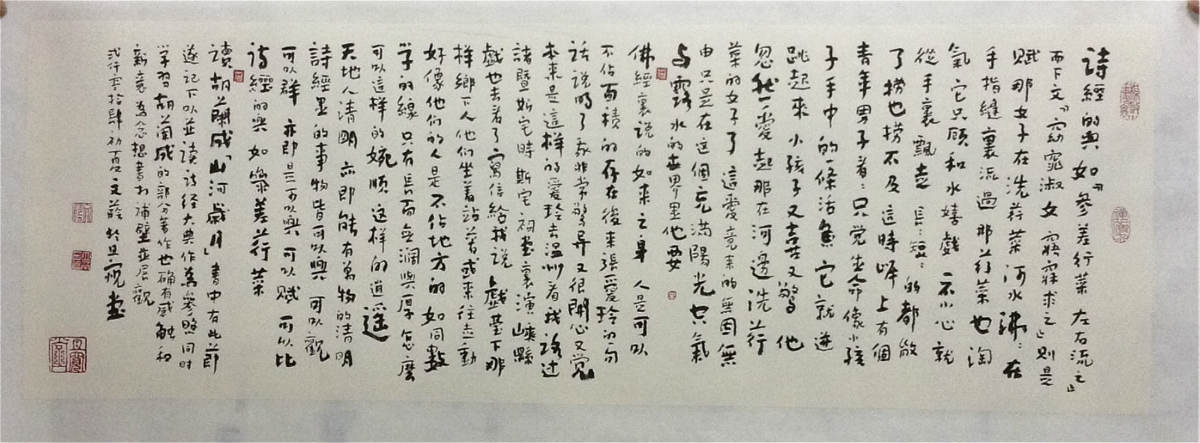 詩經的興如「參差荇菜左右流之」
而下文「窈窕淑女寤寐求之」則是
賦那女子在洗荇菜河水沸沸在
手指縫裏流過那荇菜也淘
氣它只顧和水嬉戲不小心就
從手裏飄去長長短短的都散
了撈也撈不及這時岸上有個
青年男子看看只覺生命像小孩
子手中的一條活魚它就迸
跳起來小孩子又喜又驚他
忽然愛起那在河邊洗荇
菜的女子了這愛竟來的無因無
由只是在這個充滿陽光空氣
与露水的世界里他要
佛經裏說的如来之身人是可以
不佔面積的存在後来張愛玲的句
話說明了我非常驚異又很開心又覺
本来是這樣的愛玲去温州看我路过
諸暨斯宅時斯宅祠堂裏演嵊縣
戲也去看了寫信給我説戲臺下那
样鄉下人他們坐着站着或來往走動
好像他們的人是不佔地方的如同数
学的線只有長而無濶與厚怎麽
可以這样的婉順这样的逍遥
天地人清明亦即能有萬物的清明
詩經里的事物皆可以興可以觀
可以群亦即是可以興可以賦可以比
诗經的興如參差荇菜
讀胡蘭成「山河歲月」書中有此節
遂记下以並读詩经大典作為參照同時
学習胡蘭成的部分著作也确有感触和
新意為念想書於補壁並展觀
弍仟零拾肆初夏文